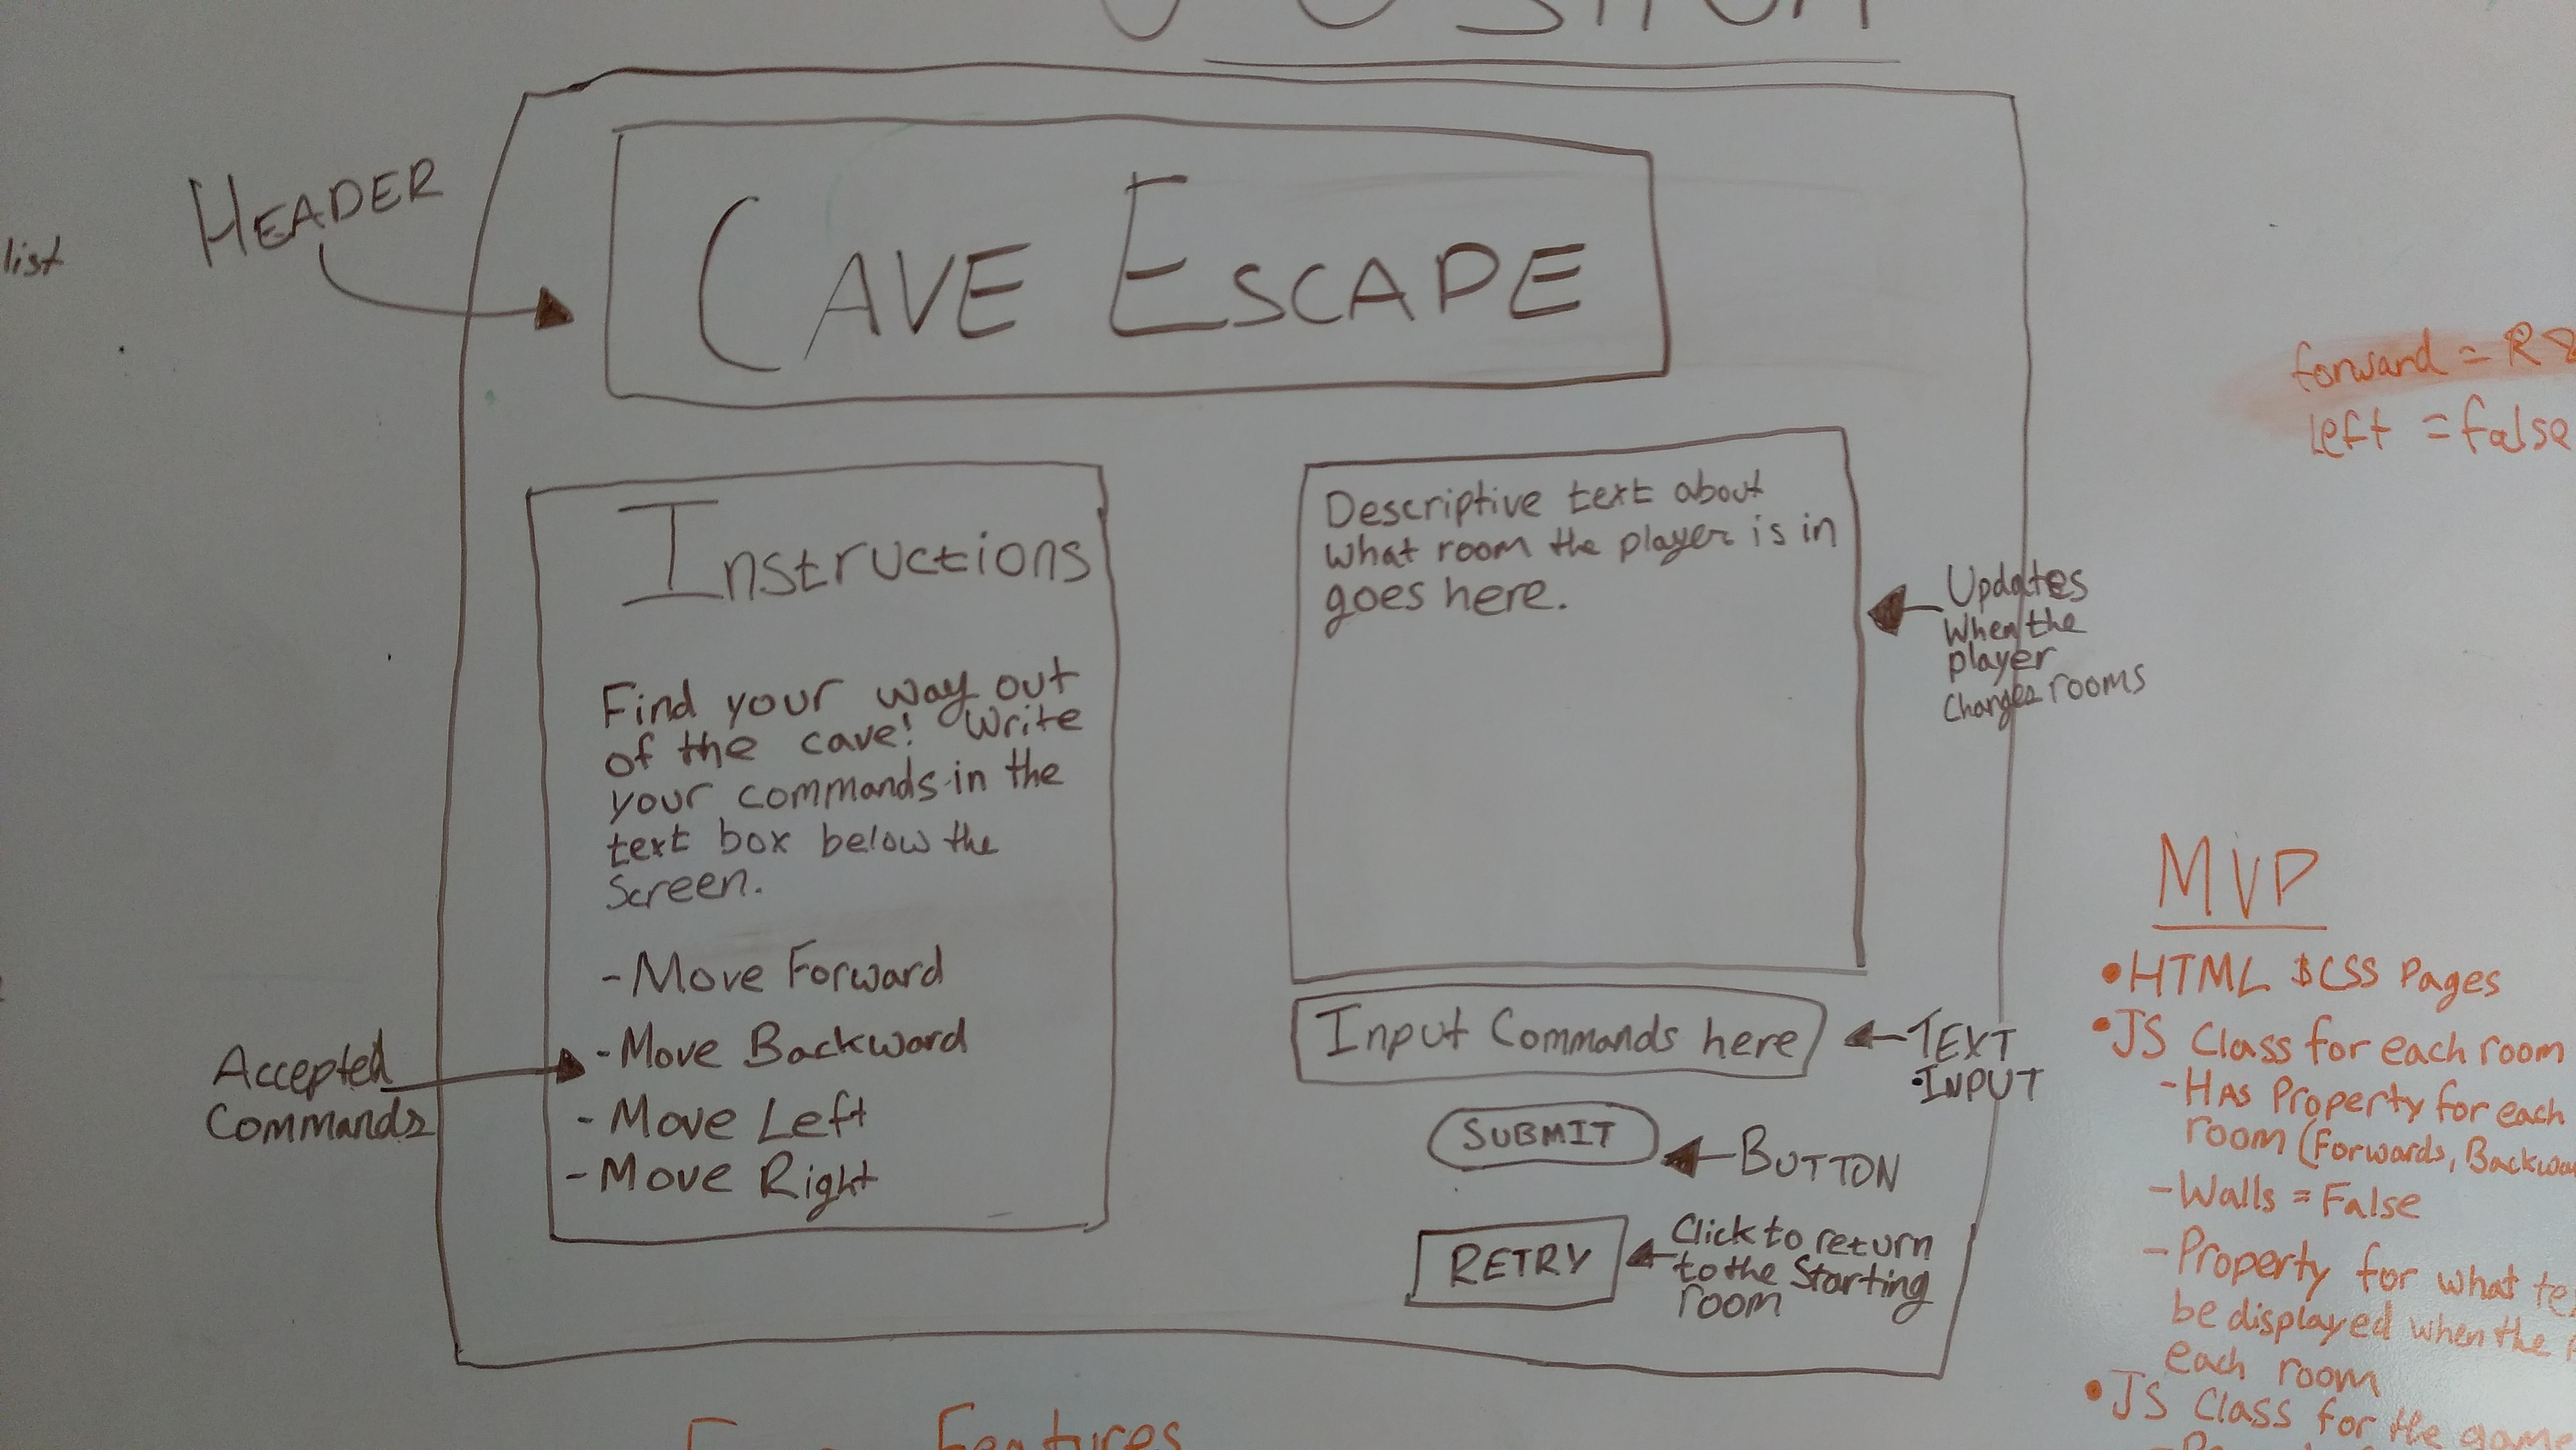 list
HEADER
CAVE ESCAPE
Instructions
Find your way out
of the cave! Write
your commands in the
text box below the
Screen.
- Move Forward
- Move Backward
- Move Left
- Move Right
Accepted
Commands
Descriptive text about
what room the player is in
goes here.
Updates
When the
player
Changes rooms
Input Commands here
TEXT
INPUT
SUBMIT
BUTTON
RETRY
Click to return
to the Starting
room
forward = R8
left = false
MVP
• HTML & CSS Pages
• JS Class for each room
- HAS Property for each
room (Forwards,
- Walls = False
- Property for what
be displayed when the
each room
• JS Class for the game
Features